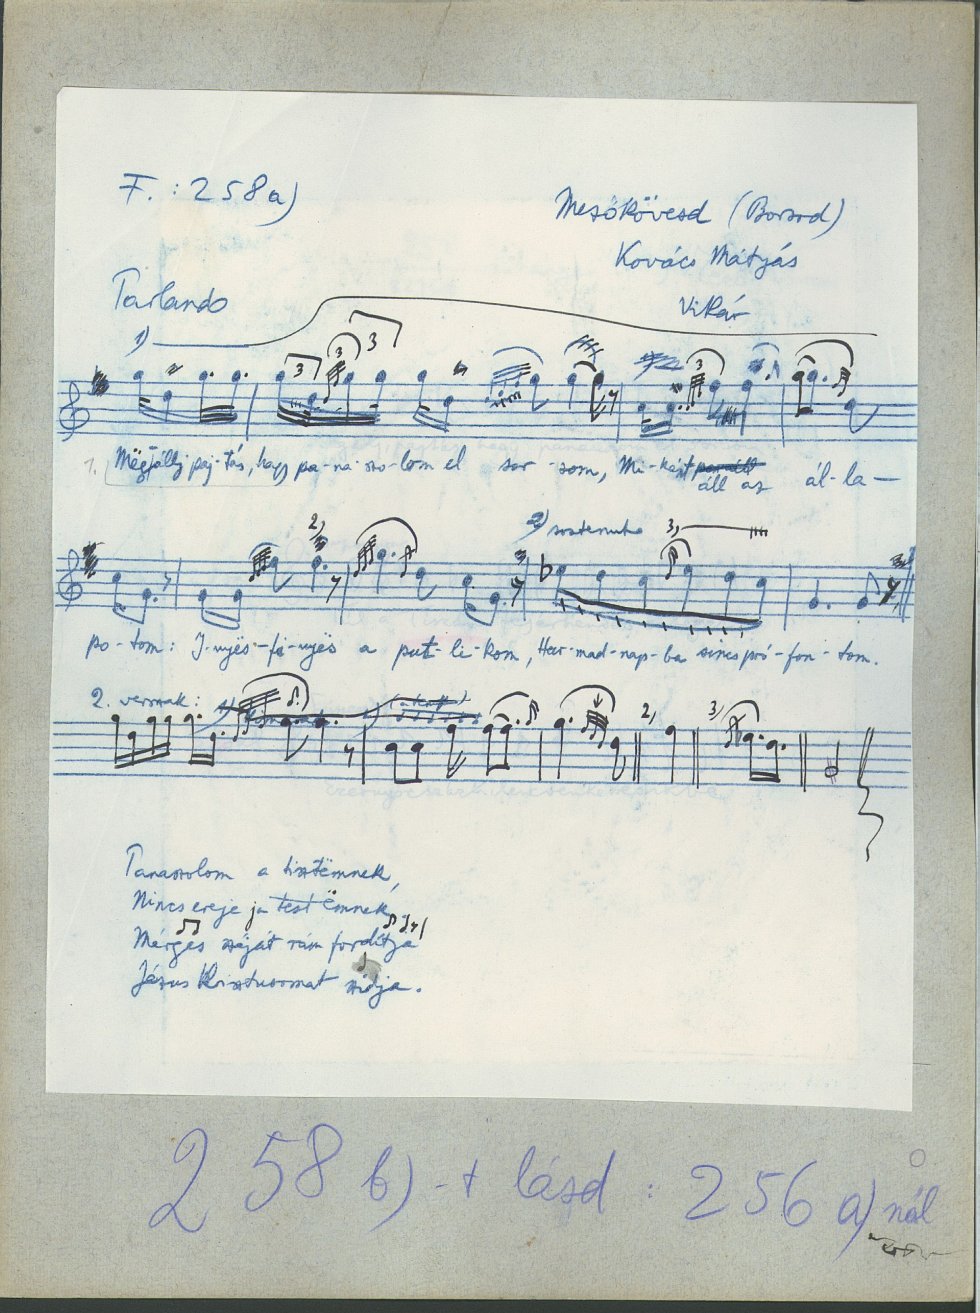 F. : 258a)
Mezőkövesd (Borsod)
Kovács Mátyás
Vikár
Parlando
1)
3 3 3 3
1. Mëgjállj paj-tás, hagy pa-na-szo-lom el sor-som, Mi-ként áll az ál-la-
2, 2) sostenuto 3,
po-tom: I-nyës-fi-nyës a put-li-kom, Har-mad-nap-ba sincs pró-fon-tom.
2. versnak: 1) 2, 3,
Panaszolom a tisztëmnek,
Nincs ereje ja testëmnek,
Mérges száját rám fordítja
Jézus Krisztusomat szidja.
258 b)-t lásd : 256 a) nál